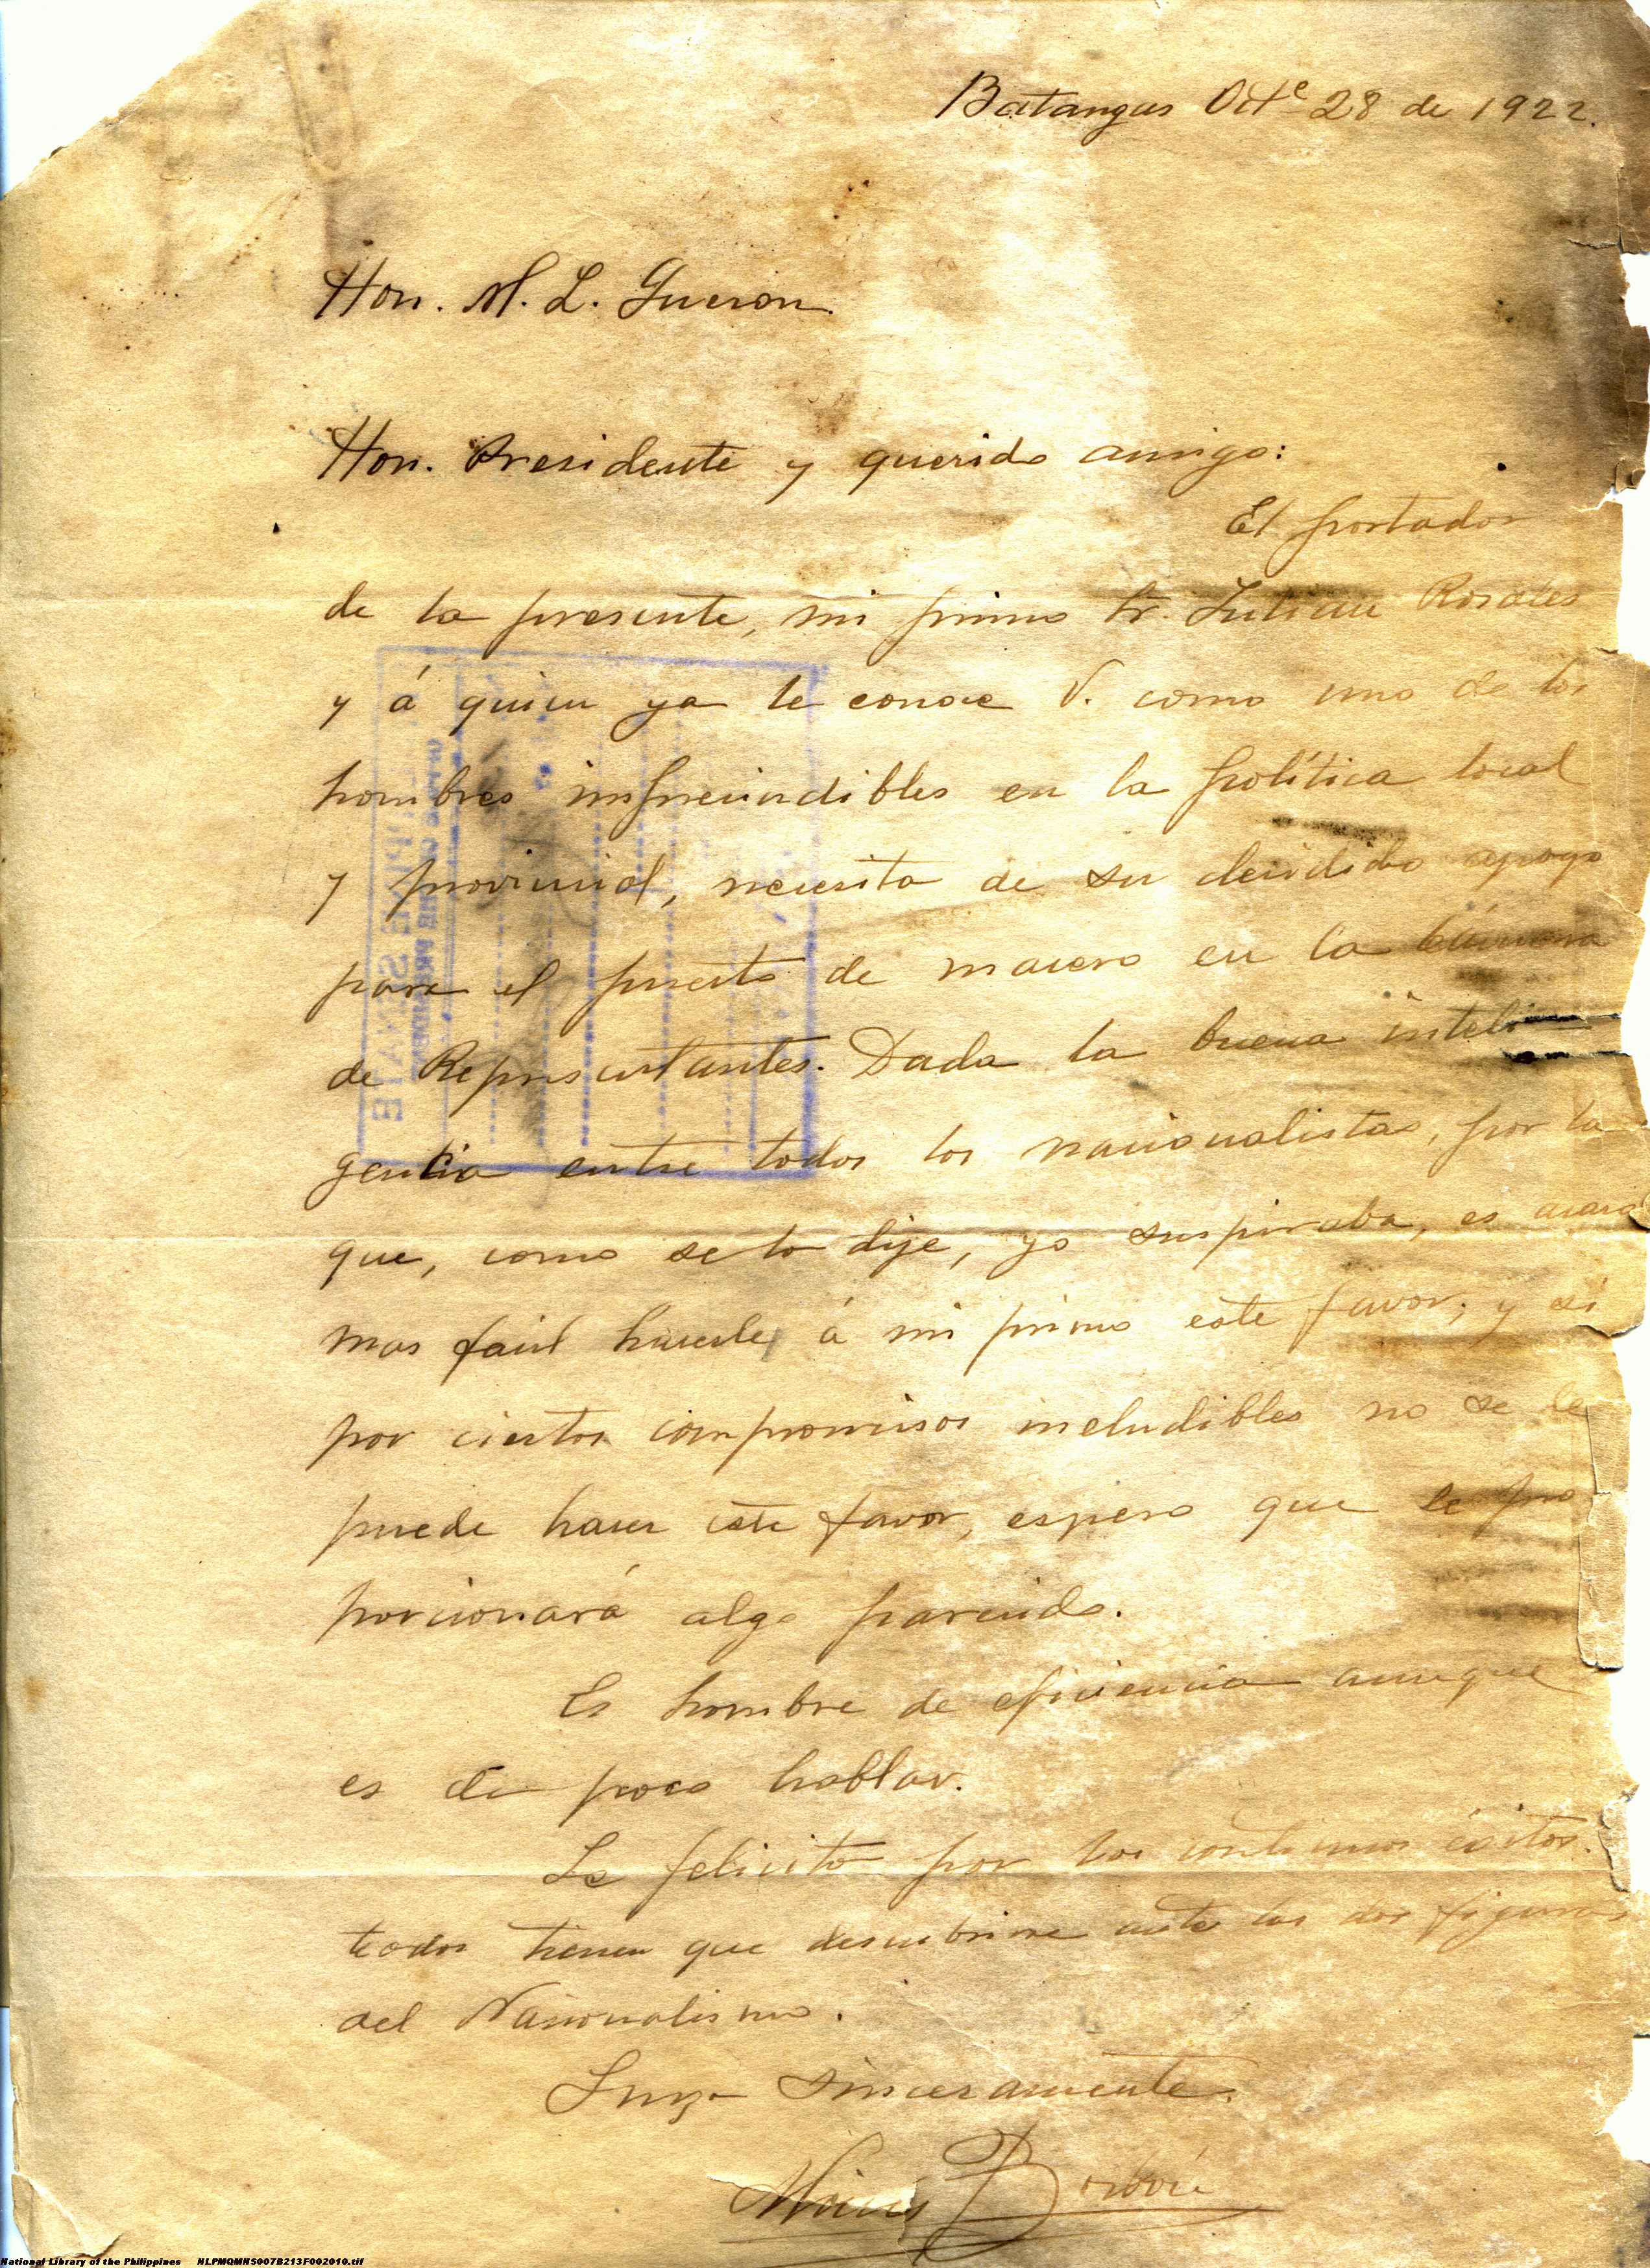 Batangas Octe 28 de 1922.
Hon. M. L. Guezon.
Hon. Presidente y querido amigo:
El portador
de la presente, mi primo Sr. Julian Rosales
y á quien ya le conoce V. como uno de los
hombres imprecindibles en la política local
y provincial, necesita de su decidido apoyo
para el puesto de macero en la Cámara
de Representantes. Dada la buena inteli
gencia entre todos los nacionalistas, por la
que, como se lo dije, yo suspiraba, es acaso
mas facil hacerle á mi primo este favor; y si
por ciertos compromisos ineludibles no se le
puede hacer este favor, espero que se le pro
porcionará algo parecido.
Es hombre de eficiencia aunque
es de poco hablar.
Le felicito por los continuos éxitos.
todos tienen que descubrirse ante las dos figuras
del Nacionalismo.
Suyo sinceramente.
Borbón
THE SENATE
OFFICE OF THE PRESIDENT
National Library of the Philippines NLPMQMNS007B213F002010.tif